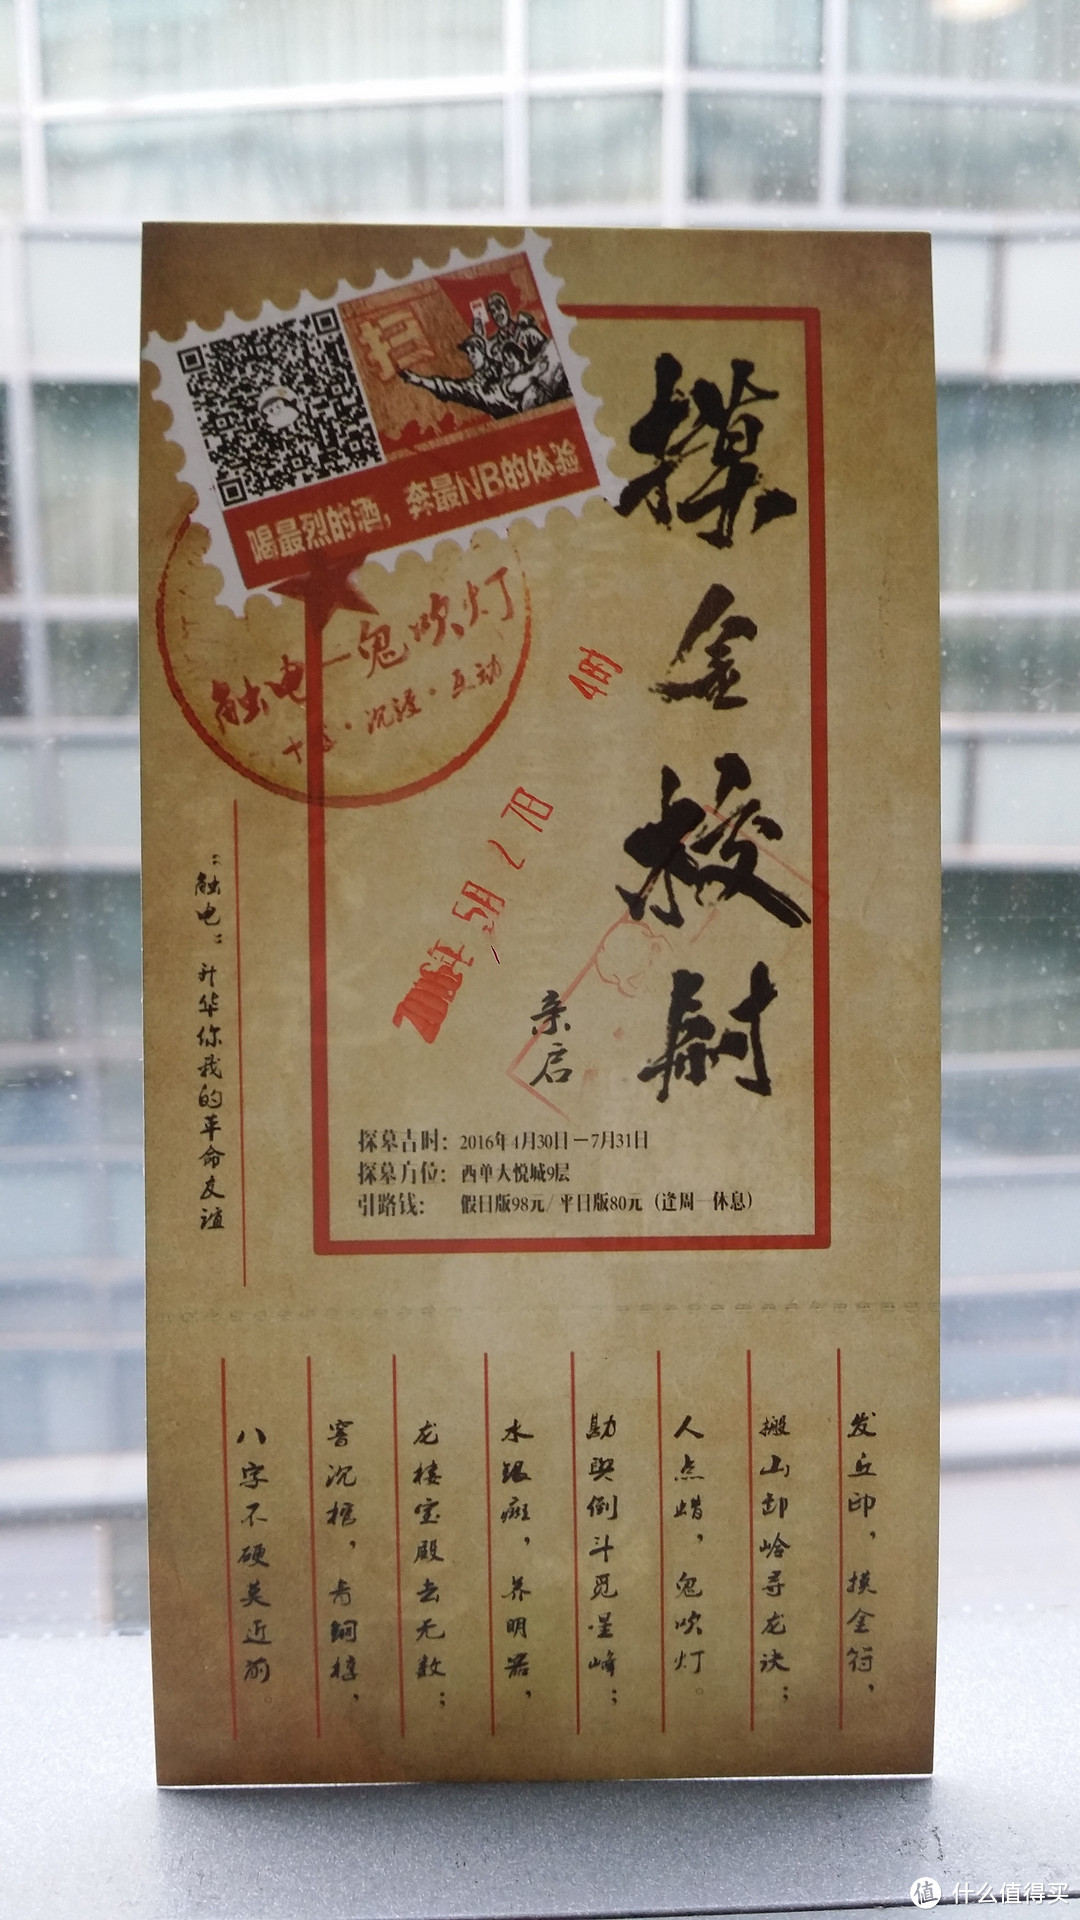 扫
喝最烈的酒，奔最NB的体验
触电—鬼吹灯
·沉浸·互动
摸金校尉
亲启
5月
7日
探墓吉时：2016年4月30日—7月31日
探墓方位：西单大悦城9层
引路钱：假日版98元/平日版80元（逢周一休息）
：触电：升华你我的革命友谊
发丘印，摸金符，
搬山卸岭寻龙诀；
人点蜡，鬼吹灯。
勘舆倒斗觅星峰；
水银斑，养明器，
龙楼宝殿去无数；
窨沉棺，青铜椁，
八字不硬莫近前。
值 什么值得买